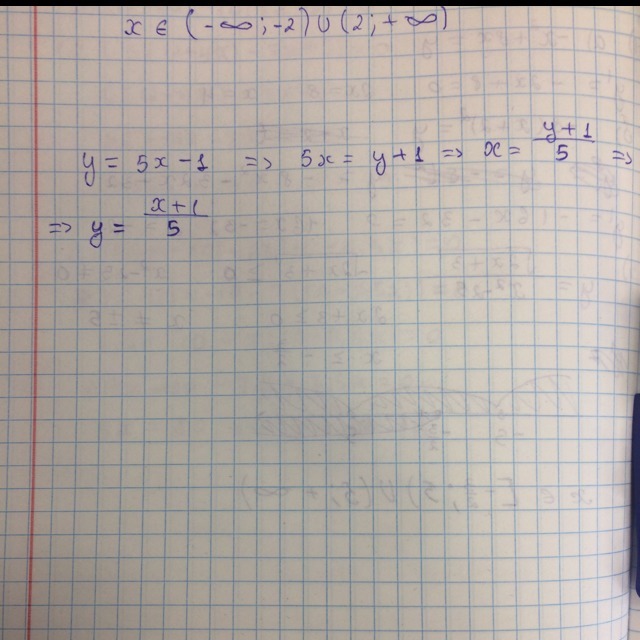 x ∈ (-∞; -2) ∪ (2; +∞)
y = 5x - 1 => 5x = y + 1 => x = (y+1)/5 =>
=> y = (x+1)/5